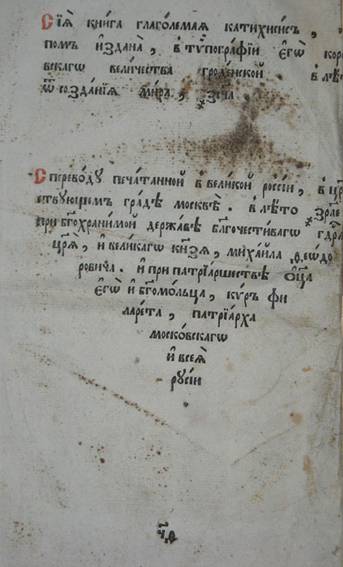 Сїѧ̀ кни́га глаго́лемая катихи́сисъ,
помъ и҆́здана, в̾ тѷпогра́фїи є҆гѡ̀ коро
вскагѡ вели́чества гро́денской в̾ лѣ́т
ѿ созда́нїѧ ми́ра,
С̾ перево́дꙋ печа́танной в̾ вели́кой рѡсси́и, в̾ ца
ствꙋющемъ гра́дѣ москвѣ̀. в̾ лѣ́то
при бг҃охрани́мой держа́вѣ благочести́вагѡ
цр҃ѧ̀, и҆ вели́кагѡ кн҃зѧ, михаи́ла ѳ,еѡ́до
рови́ча. и҆ при патрїа́ршествѣ ѻ҆тца̀
є҆гѡ̀ и҆ бг҃омо́льца, кѵ́ръ фи
ларе́та, патрїа́рха
моско́вскагѡ
и҆ всеѧ̀
рꙋсі́и